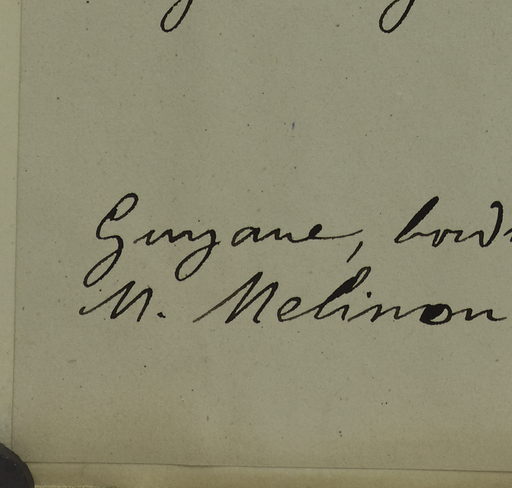 Guyane, bord
M. Melinon